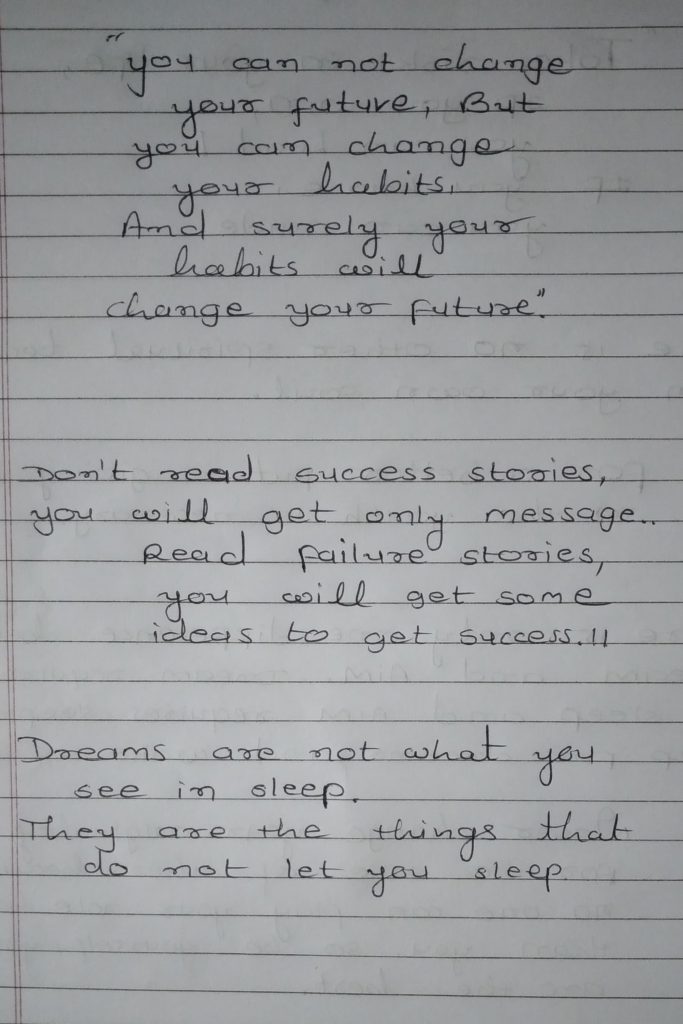 "you can not change
your future, But
you can change
your habits,
And surely your
habits will
change your future."
Don't read success stories,
you will get only message..
Read failure stories,
you will get some
ideas to get success.!!
Dreams are not what you
see in sleep.
They are the things that
do not let you sleep